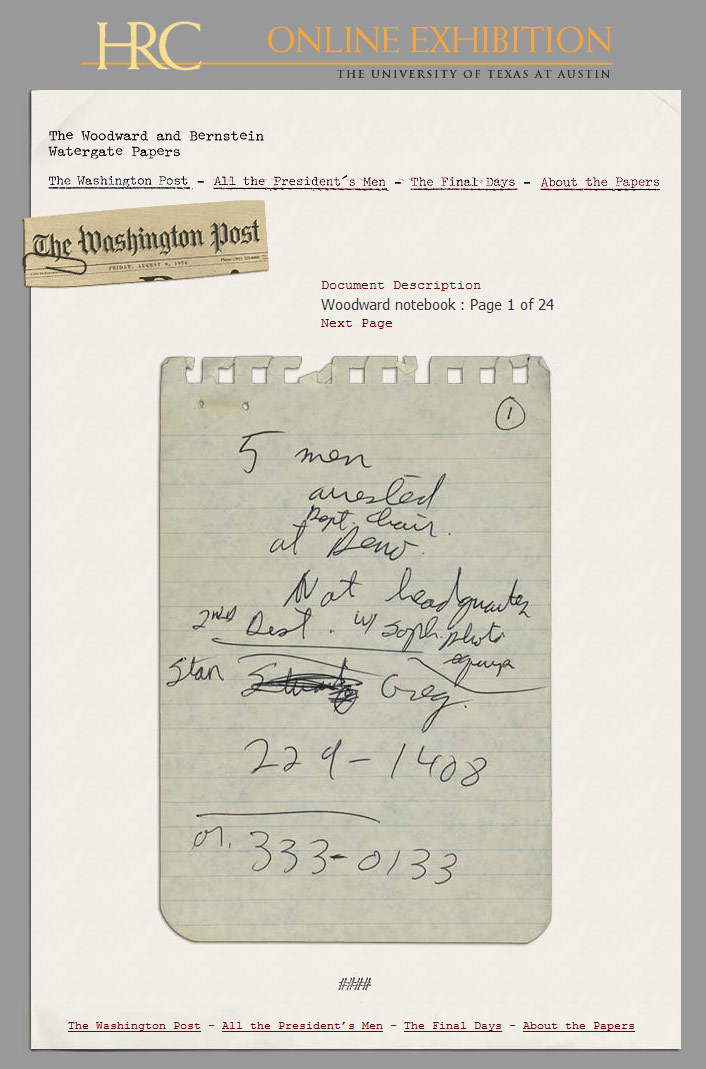 HRC ONLINE EXHIBITION
THE UNIVERSITY OF TEXAS AT AUSTIN
The Woodward and Bernstein
Watergate Papers
The Washington Post - All the President's Men - The Final Days - About the Papers
The Washington Post
FRIDAY, AUGUST 9, 1974
Document Description
Woodward notebook : Page 1 of 24
Next Page
1
5 men
arrested
chair.
at Demo.
Nat headquarter
2nd Dist. w/ soph. photo
equip
Stan Greg.
229-1408
or. 333-0133
####
The Washington Post - All the President's Men - The Final Days - About the Papers